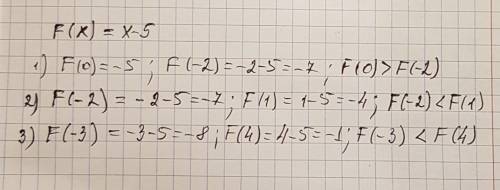 F(x) = x-5
1) F(0)=-5; F(-2)=-2-5=-7; F(0)>F(-2)
2) F(-2) = -2-5=-7; F(1)=1-5=-4; F(-2)<F(1)
3) F(-3) =-3-5=-8; F(4)=4-5=-1; F(-3) < F(4)